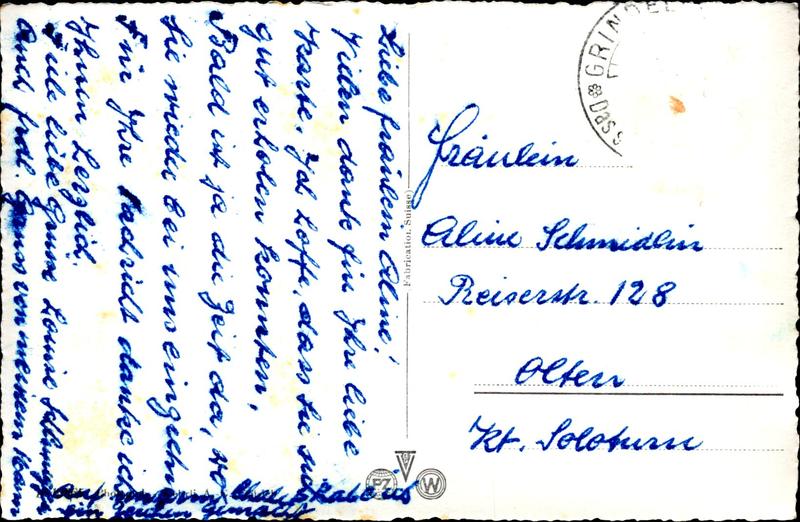 Liebe Fräulein Aline!
Vielen dank für Ihre liebe
Karte. Ich hoffe, dass Sie
gut erholen konnten.
Bald ist ja die Zeit da, wo
Sie wieder bei uns einziehn
Für Ihre Nachricht danke ich
Ihnen herzlich.
Viele liebe Grüsse Louise
Auch frdl. Gruss von meinem Mann
ein gemacht
(Fabrication Suisse)
GRINDEL
Fräulein
Aline Schmidlin
Reiserstr. 128
Olten
Kt. Soloturn
PZ
W